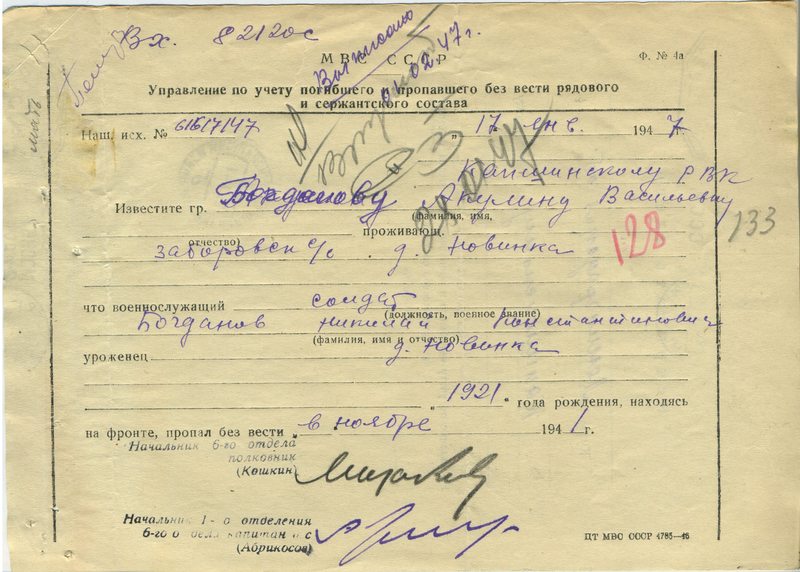 Вх. 82120с
МВС СССР
Ф. № 4а
01.02.47г.
Управление по учету погибшего и пропавшего без вести рядового
и сержантского состава
Наш. исх. № 61617147
„17 янв. 1947
рвк
Известите гр. Богданову Акулину Васильевну
(фамилия, имя,
отчество)
проживающ.
Заборовск с/с д. Новинка
128
133
что военнослужащий солдат
(должность, военное звание)
Богданов Николай Константинович
(фамилия, имя и отчество)
уроженец д. Новинка
„1921 " года рождения, находясь
на фронте, пропал без вести „в ноябре 1941 г.
Начальник 6-го отдела
полковник
(Кошкин)
Начальник 1-о отделения
6-го о дела капитан с
(Абрикосов)
ЦТ МВС СССР 4785—46